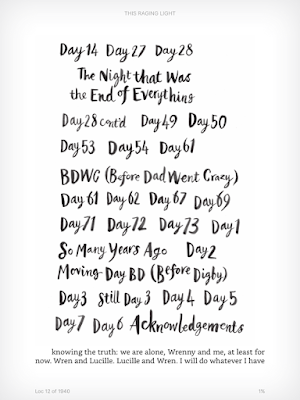 THIS RAGING LIGHT
Day 14 Day 27 Day 28
The Night that Was
the End of Everything
Day 28 cont'd Day 49 Day 50
Day 53 Day 54 Day 61
BDWC (Before Dad Went Crazy)
Day 61 Day 62 Day 67 Day 69
Day 71 Day 72 Day 73 Day 1
So Many Years Ago Day 2
Moving-Day BD (Before Digby)
Day 3 Still Day 3 Day 4 Day 5
Day 7 Day 6 Acknowledgements
knowing the truth: we are alone, Wrenny and me, at least for
now. Wren and Lucille. Lucille and Wren. I will do whatever I have
Loc 12 of 1940
1%